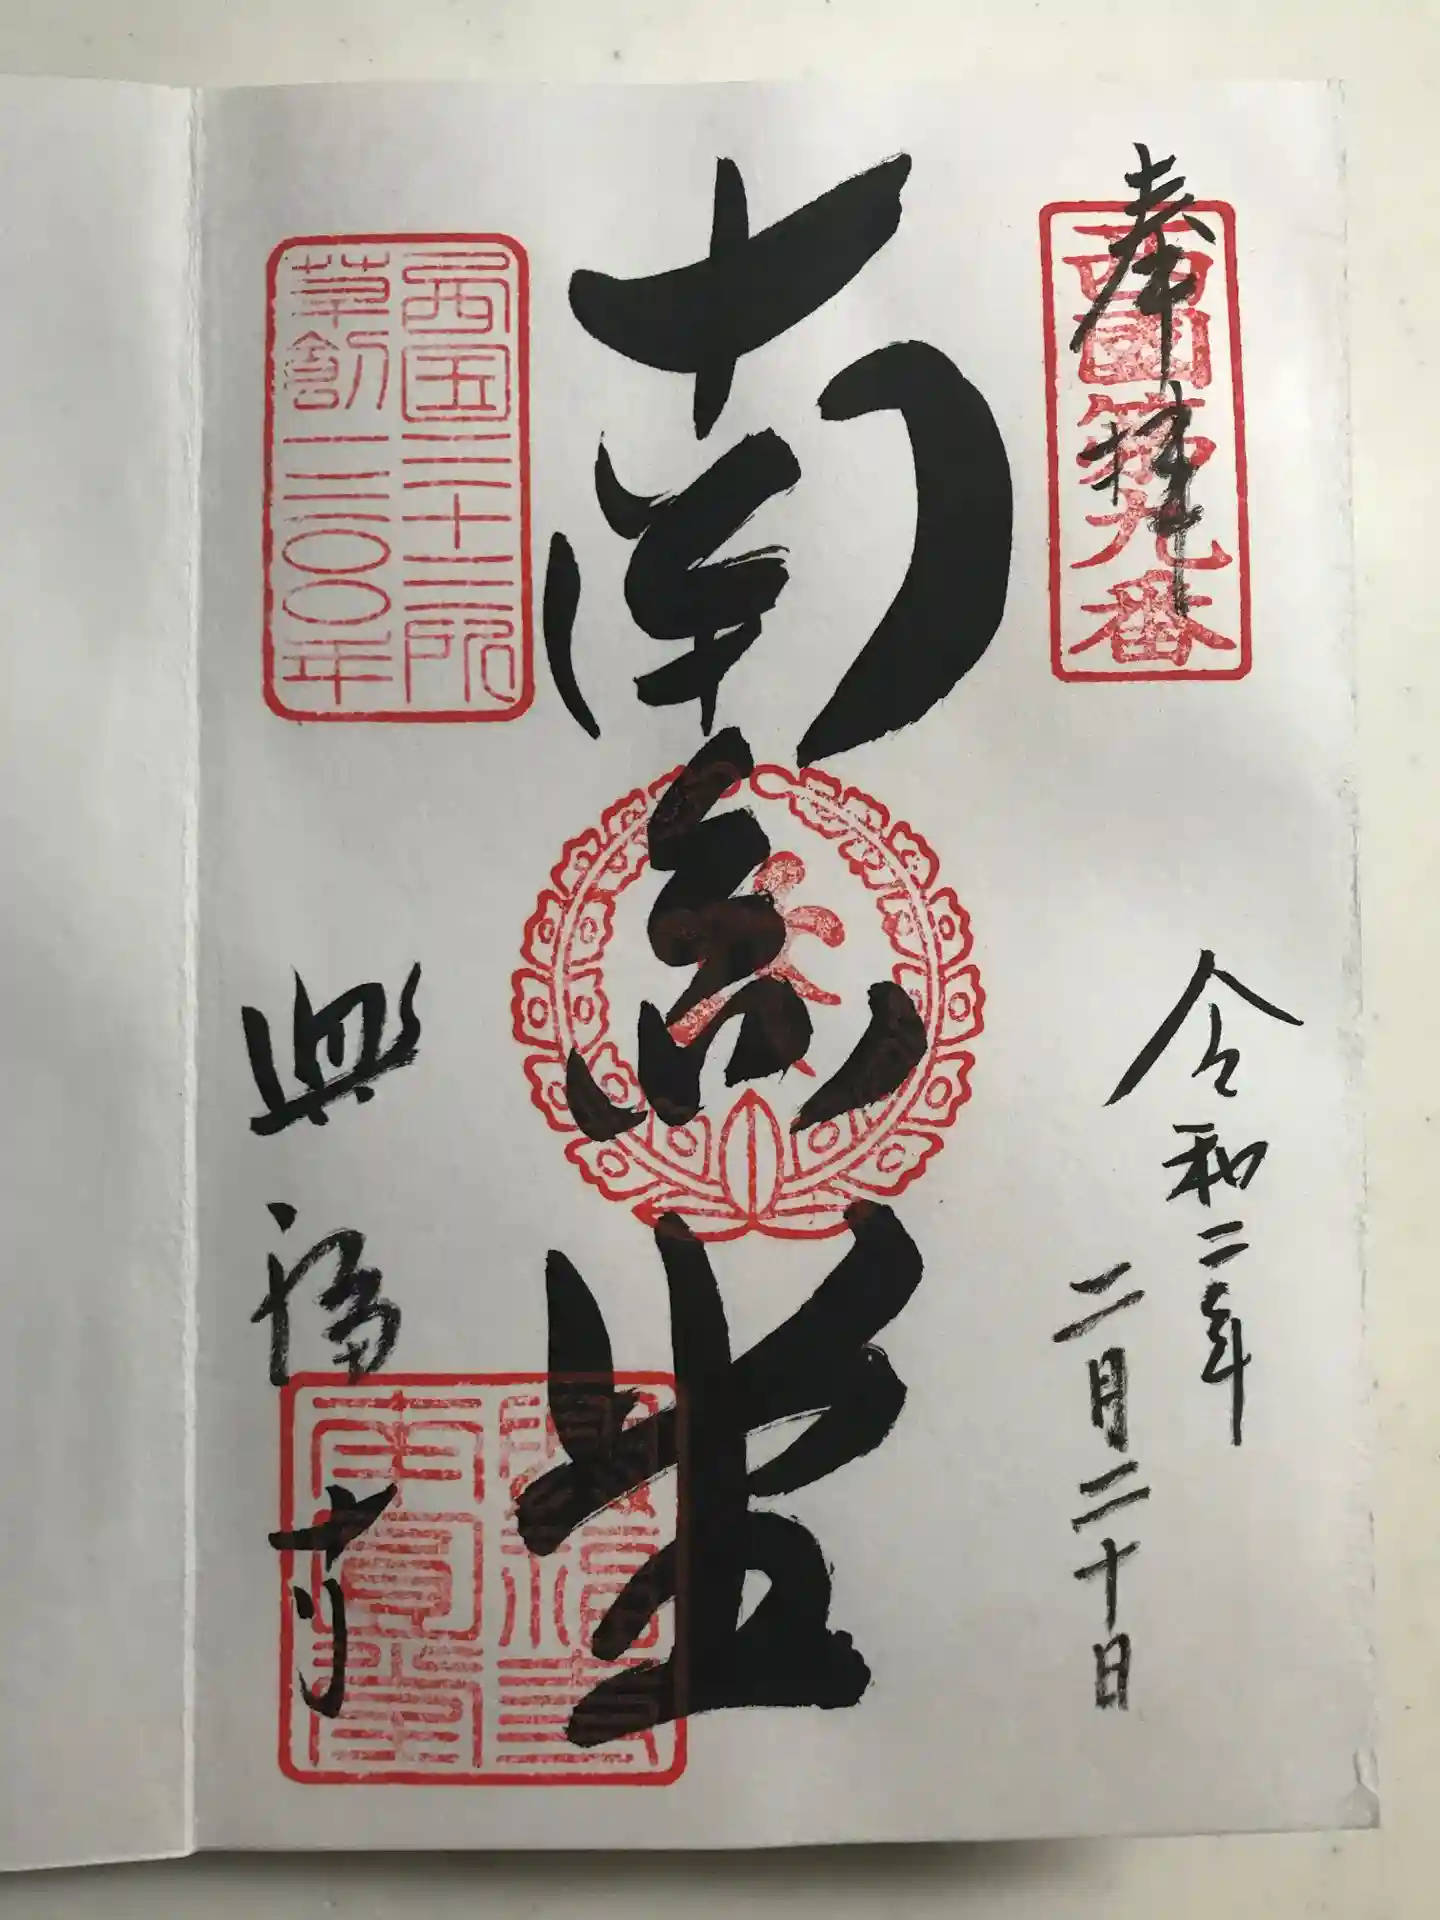 奉拝
西國第九番
令和二年
二月二十日
南圓堂
西国三十三所
草創一三〇〇年
興福寺
興福寺
南圓堂